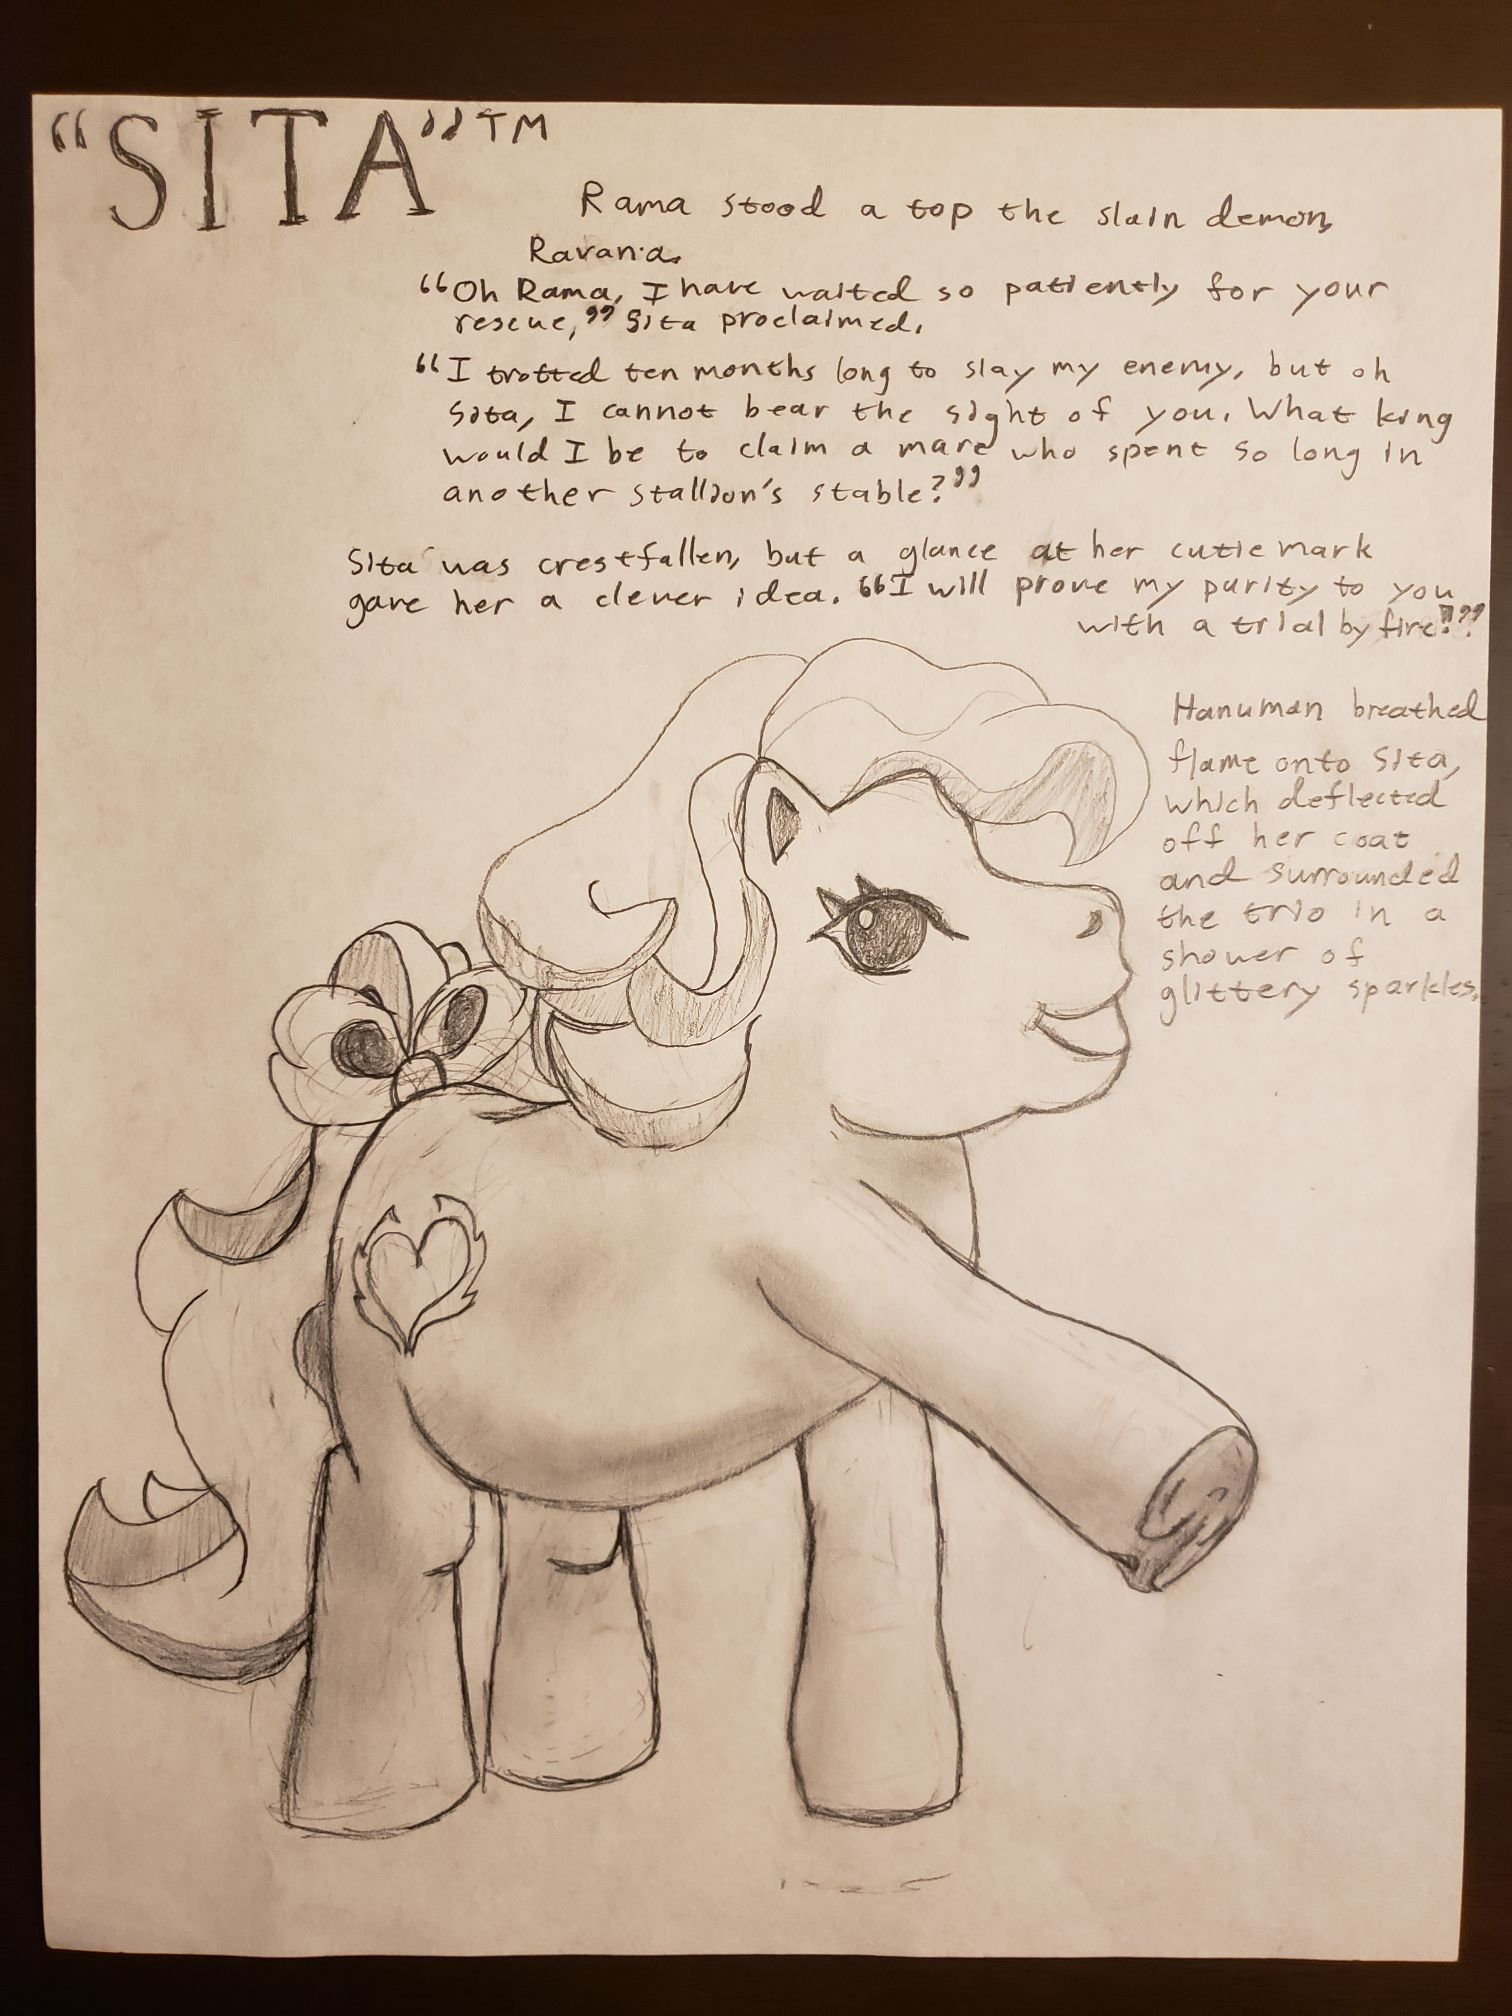 “SITA” TM
Rama stood a top the slain demon,
Ravana.
“Oh Rama, I have waited so patiently for your
rescue,” Sita proclaimed.
“I trotted ten months long to slay my enemy, but oh
Sita, I cannot bear the sight of you. What king
would I be to claim a mare who spent so long in
another stallion's stable?”
Sita was crestfallen, but a glance at her cutie mark
gave her a clever idea. “I will prove my purity to you
with a trial by fire!”
Hanuman breathed
flame onto Sita,
which deflected
off her coat
and surrounded
the trio in a
shower of
glittery sparkles.